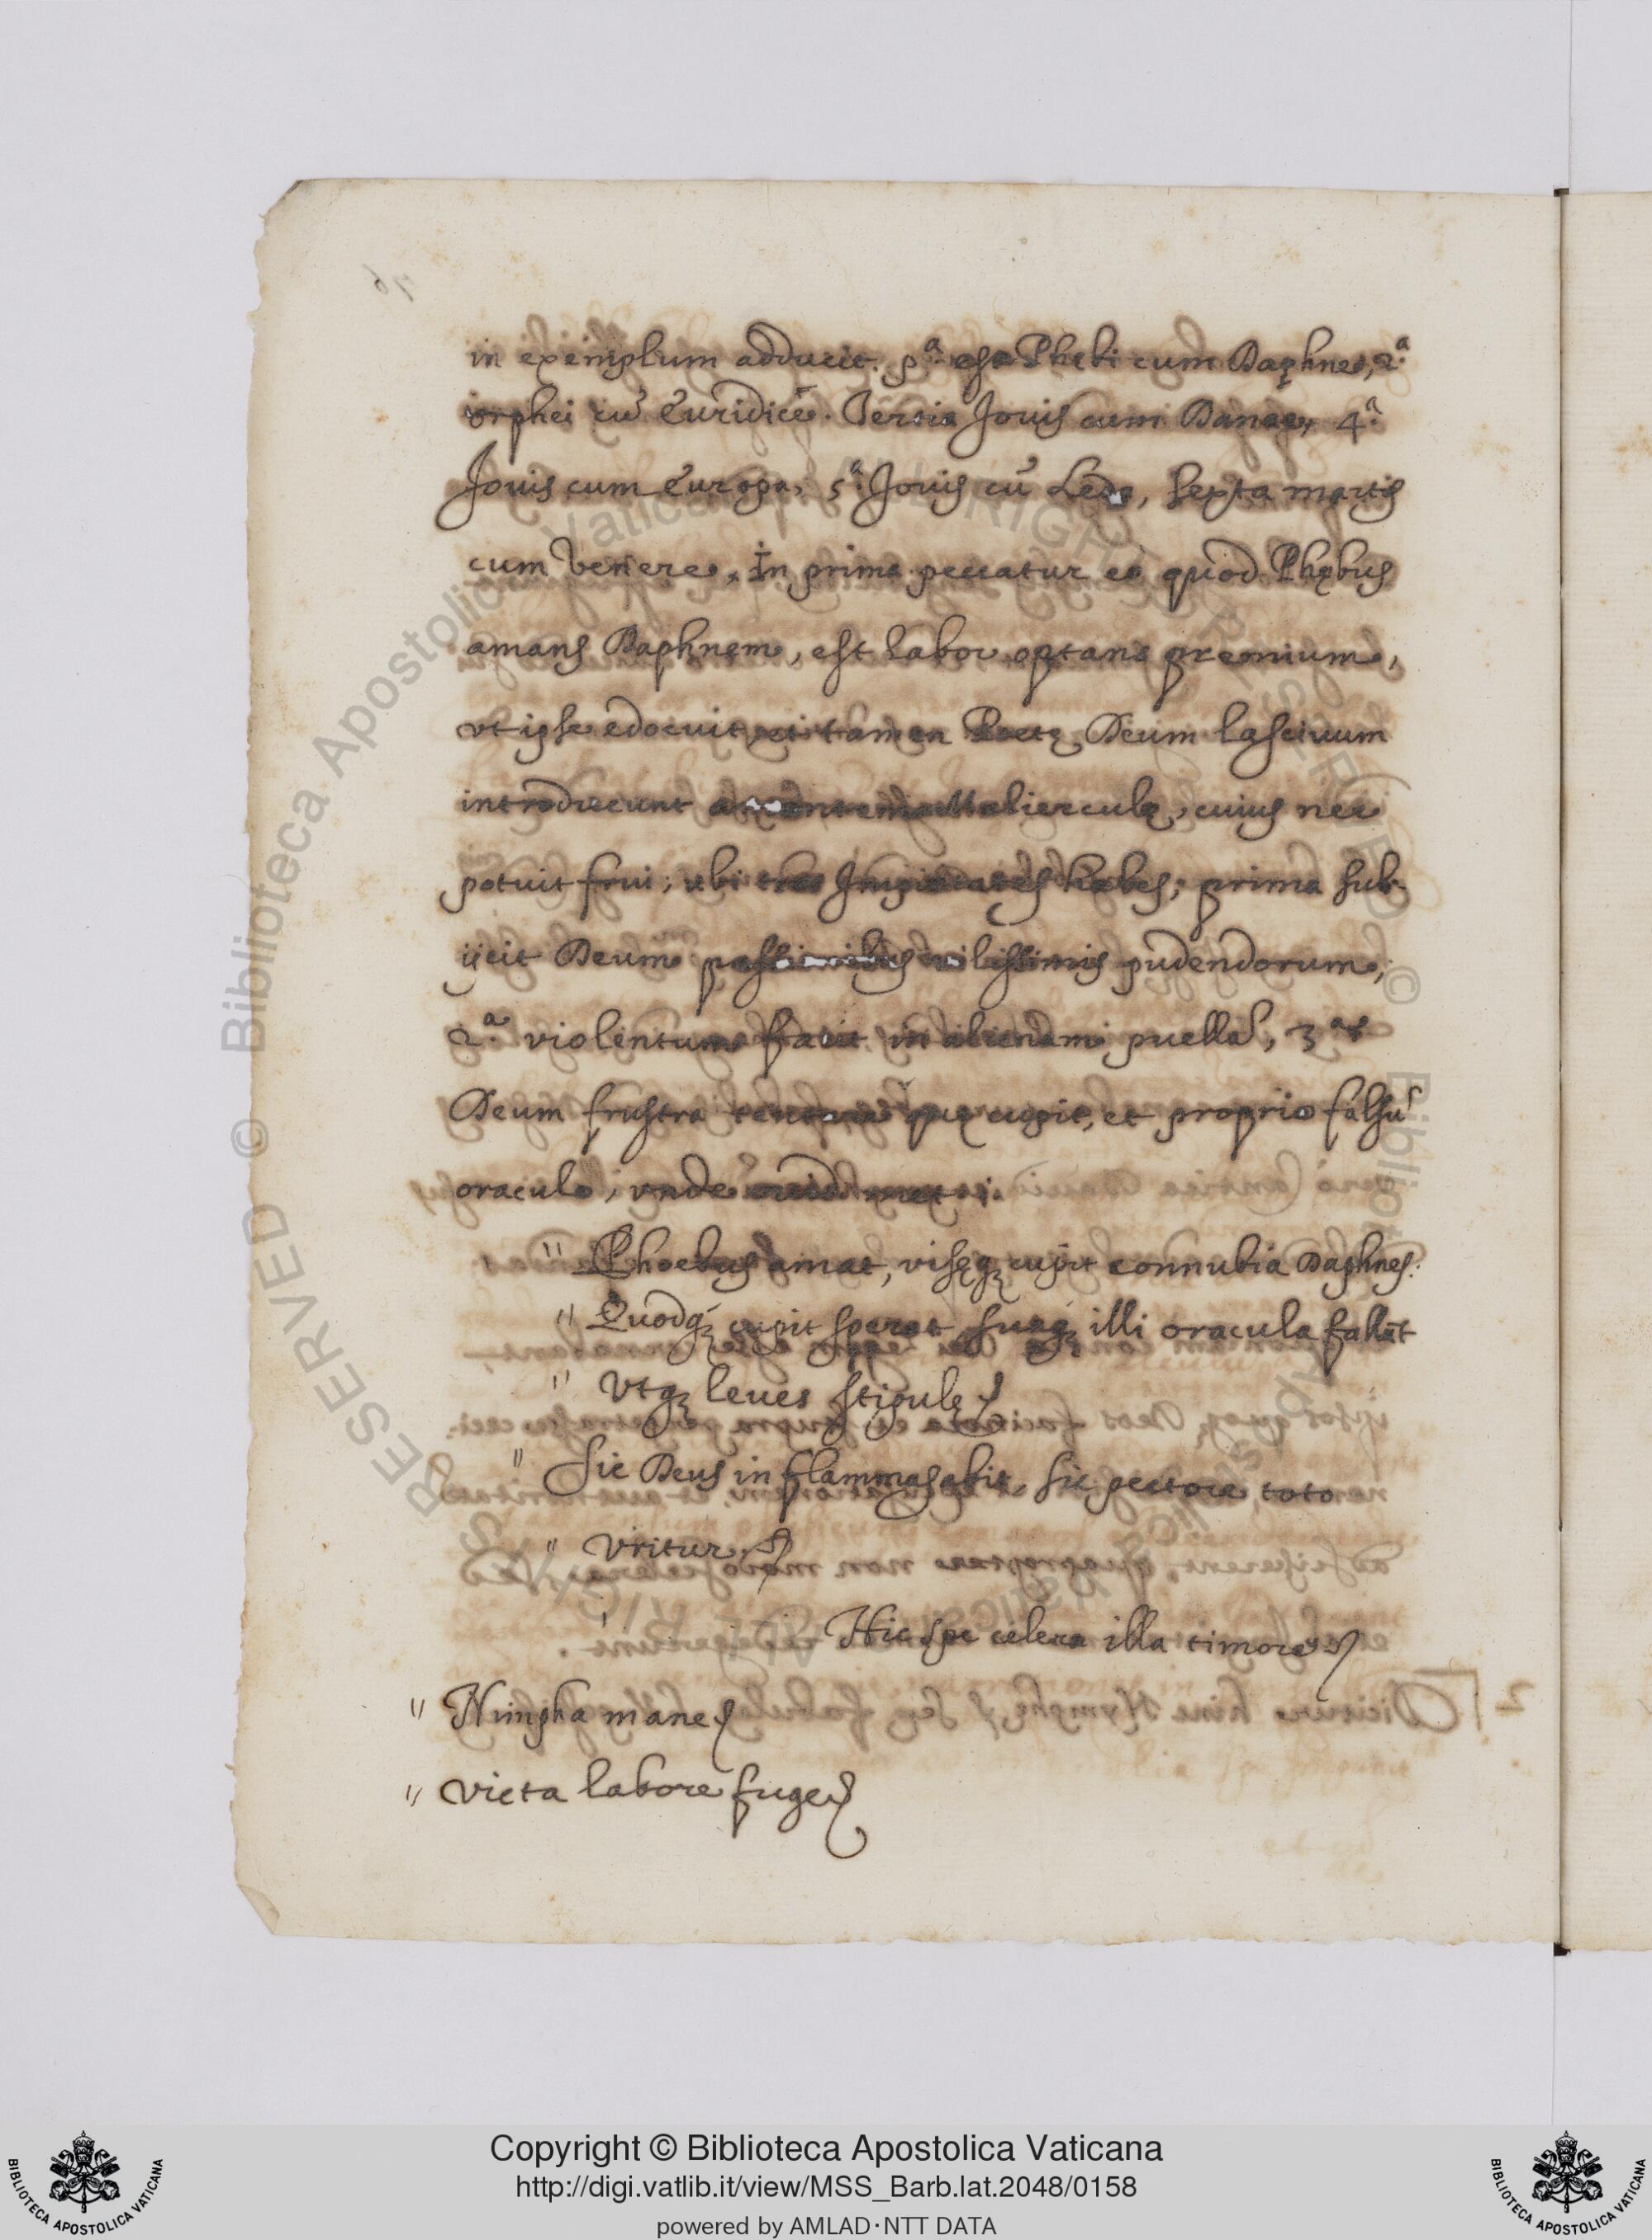 in exemplum adducit. pª. est Phębi cum Daphne, 2ª.
orphei cū Euridicē. Tertia Jouis cum Danae, 4ª.
Jouis cum Europa, 5ª. Jouis cū Leda, Sexta martis
cum Venere. In prima peccatur eò quòd Phębus
amans Daphnem, est labor optans premium,
vt ipse edocuit, et tamen Poetę Deum lasciuum
introducunt Mulierculę, cuius nec
potuit frui; vbi tres Impietates habes; prima sub-
ijcit Deum passionibus vilissimis pudendorum,
2ª. violentum facit in alienam puellā, 3ª
Deum frustra quę cupit, et proprio falsū
oraculo, vnde
" Phoebus amat, visęqȝ cupit connubia Daphnes.
" Quodqȝ cupit sperat suaqȝ illi oracula fallūt
" Vtqȝ leues stipulę
" Sic Deus in flammas abit, sic pectore toto
" Vritur.
Hic spe celer illa timore
" Nimpha mane
" Victa labore fuge
Copyright © Biblioteca Apostolica Vaticana
http://digi.vatlib.it/view/MSS_Barb.lat.2048/0158
powered by AMLAD·NTT DATA
BIBLIOTECA APOSTOLICA VATICANA
BIBLIOTECA APOSTOLICA VATICANA